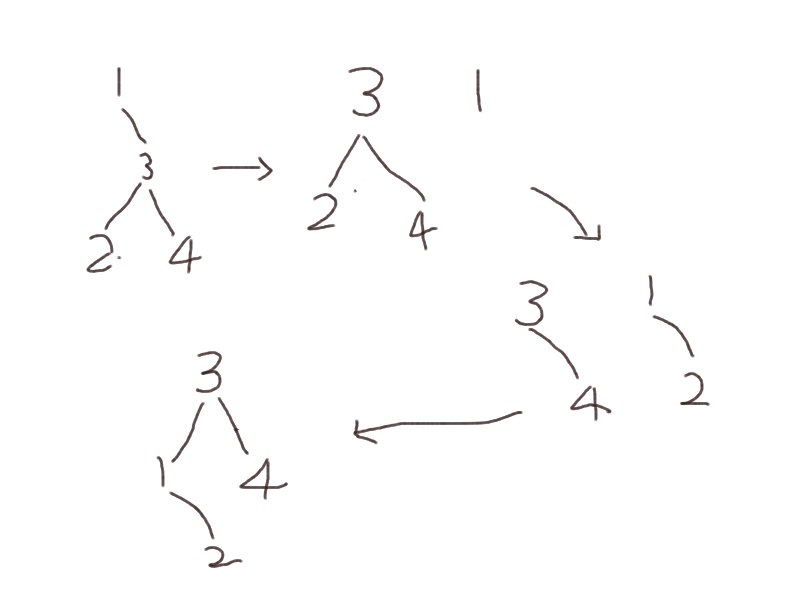 1
3
2 4
3 1
2 4
3 1
4 2
3
1 4
2